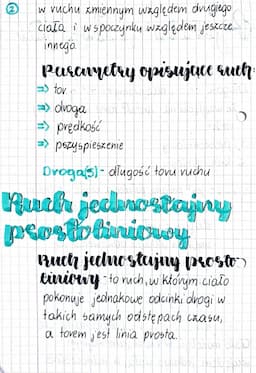 2
w ruchu zmiennym względem drugiego
ciała i w spoczynku względem jeszcze
innego
Parametry opisujące ruch:
⇒ tor
⇒ droga
⇒ prędkość
⇒ przyspieszenie
Droga(s) - długość toru ruchu
Ruch jednostajny
prostoliniowy
Ruch jednostajny prosto-
liniowy - to ruch, w którym ciało
pokonuje jednakowe odcinki drogi w
takich samych odstępach czasu,
a torem jest linia prosta.